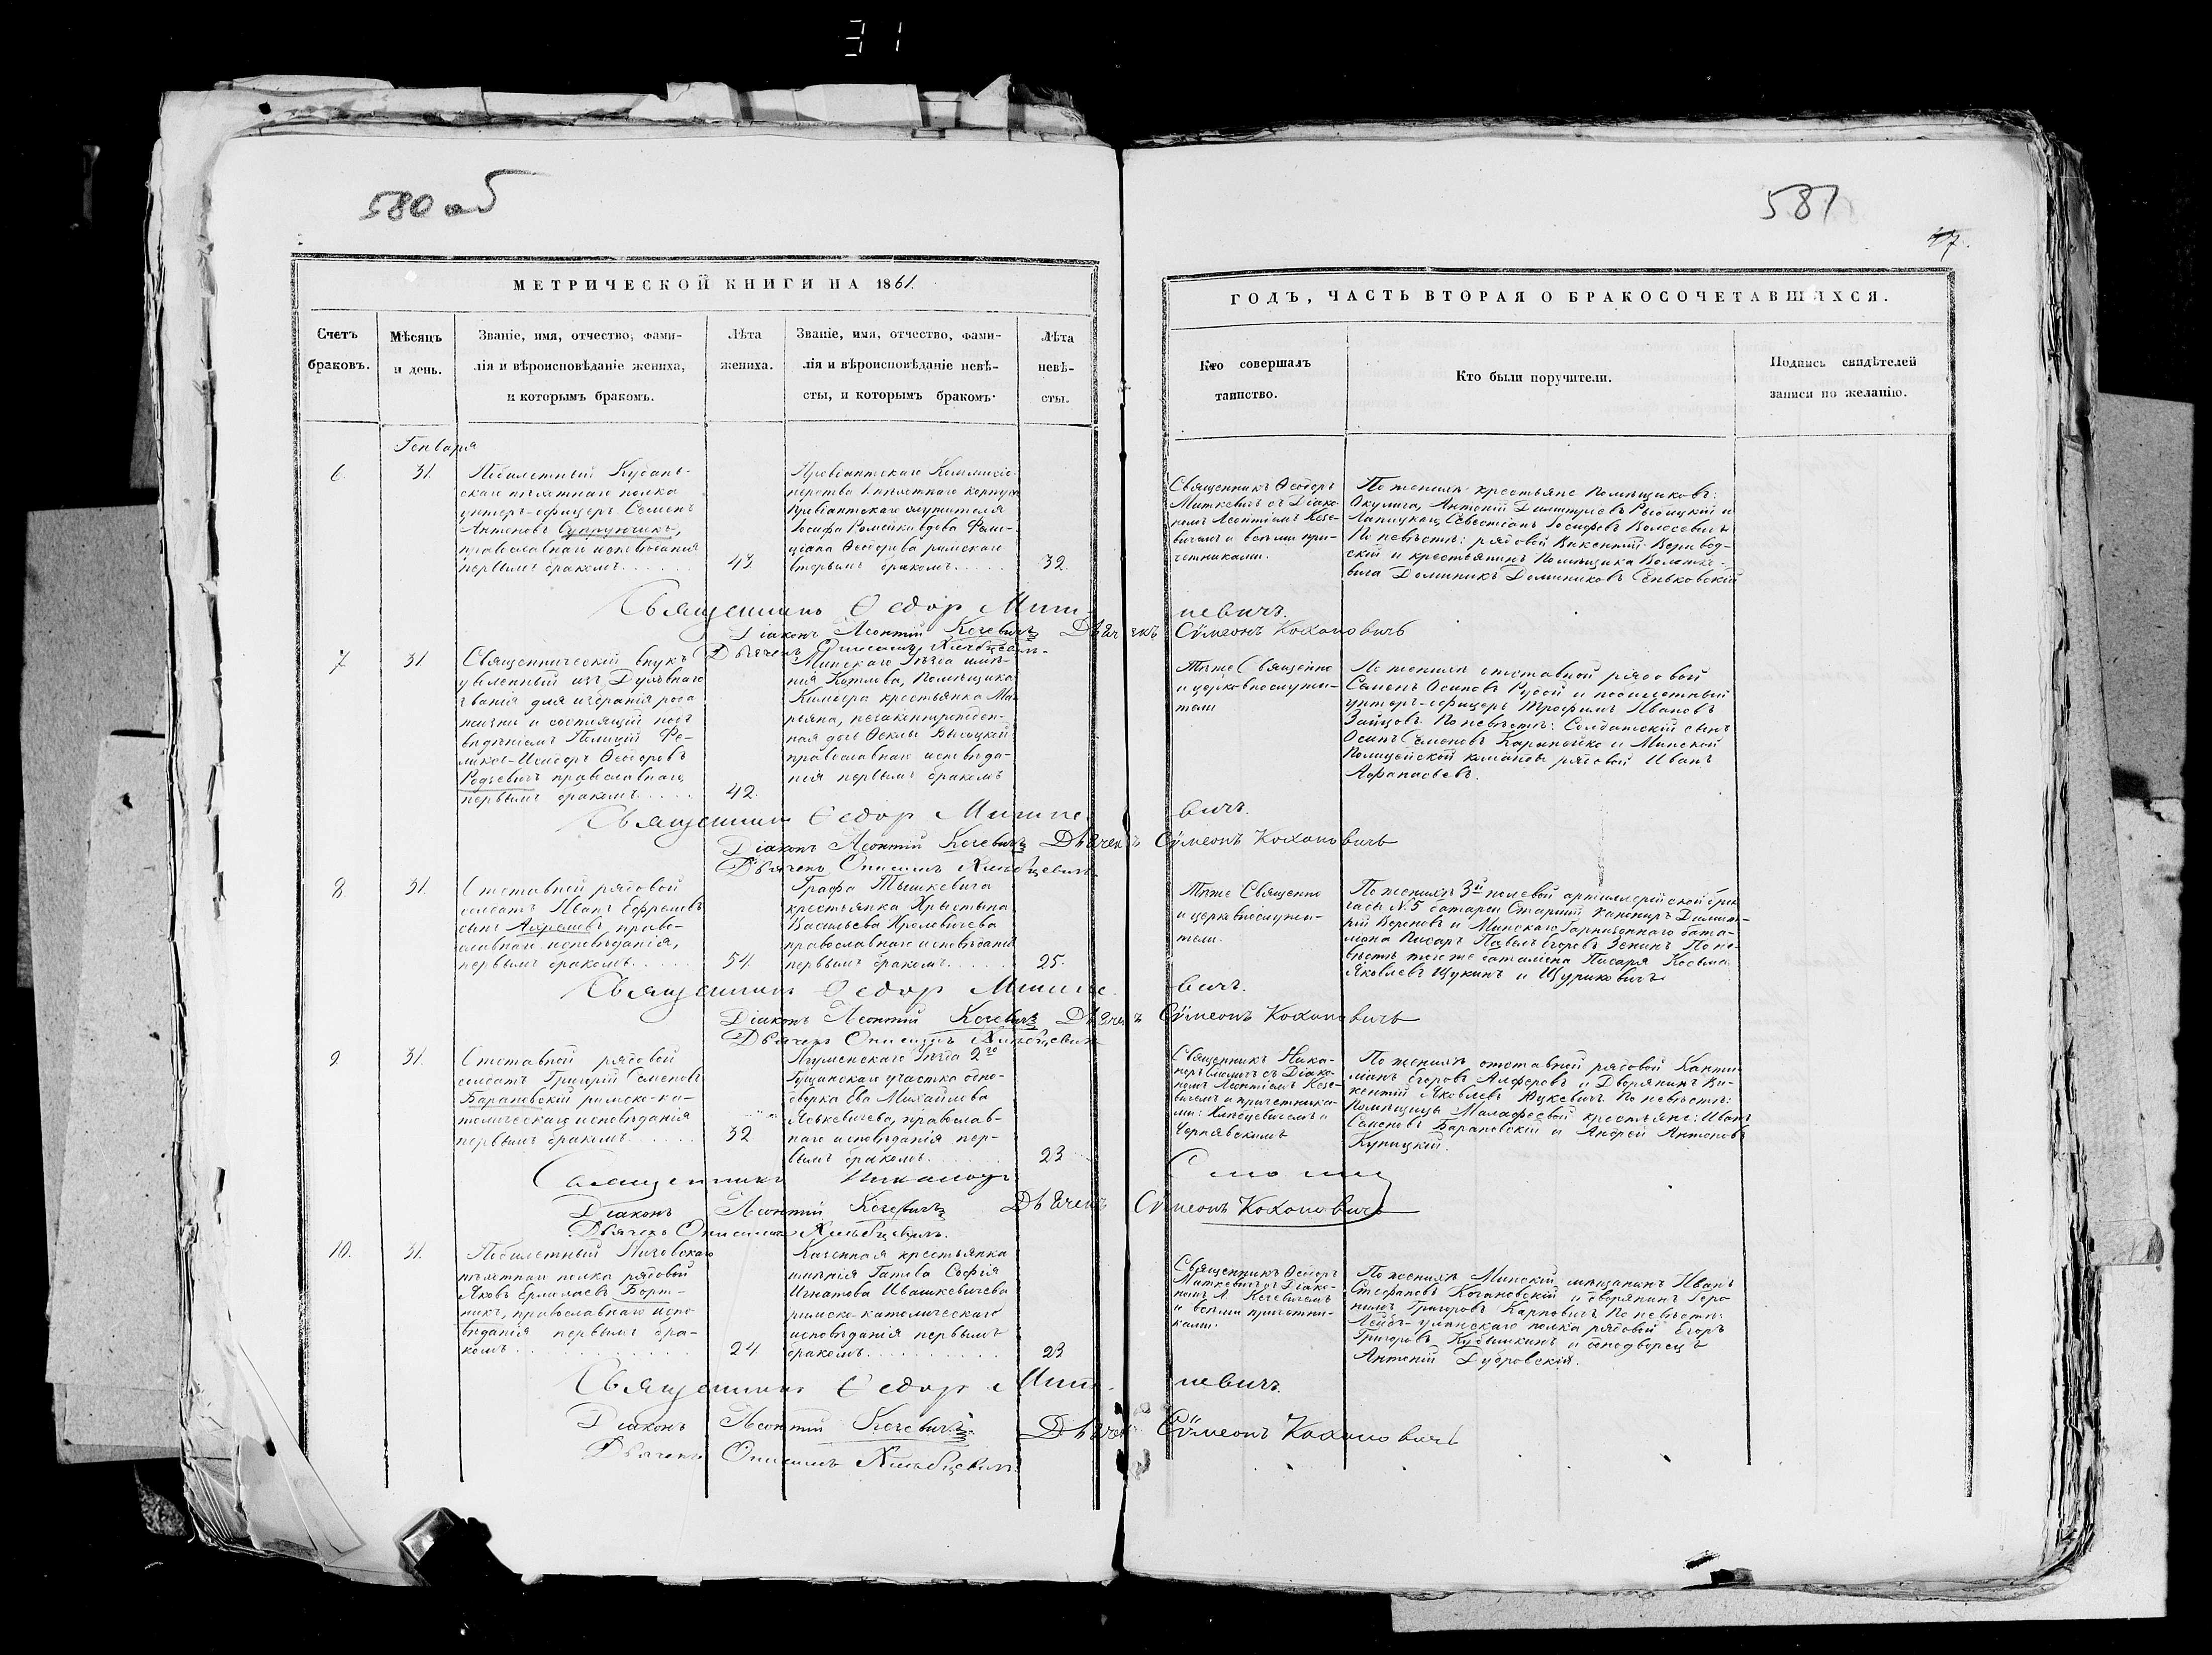 31
580 об
581
47.
МЕТРИЧЕСКОЙ КНИГИ НА 1861.
ГОДЪ, ЧАСТЬ ВТОРАЯ О БРАКОСОЧЕТАВШИХСЯ.
Счетъ
браковъ.
Мѣсяцъ
и день.
Званіе, имя, отчество, фами-
лія и вѣроисповѣданіе жениха,
и которымъ бракомъ.
Лѣта
жениха.
Званіе, имя, отчество, фами-
лія и вѣроисповѣданіе невѣ-
сты, и которымъ бракомъ.
Лѣта
невѣ-
сты.
Кто совершалъ
таинство.
Кто были поручители.
Подпись свидѣтелей
записи по желанію.
Генваря
6. 31.
пѣхотнаго полка
унтеръ-офицеръ Семенъ
Антоновъ Супрунчикъ,
православнаго исповѣданія
первымъ бракомъ
43
Провіантскаго
пѣхотнаго корпуса
Провіантскаго служителя
Іосифа Ромейки вдова
Ѳеодорова римскаго
вторымъ бракомъ
32.
Священникъ Ѳеодоръ
Миткевичъ съ Діако-
номъ Леонтіемъ Кеге-
вичемъ и всѣми при-
четниками.
По женихѣ крестьяне помѣщиковъ:
Антоній Димитріевъ и
Іосифовъ
По невѣстѣ: рядовой Викентій
и крестьянинъ помѣщика
Доминикъ Доминиковъ Сеньковскій
Священникъ Ѳедоръ Миткевичъ.
Діаконъ Леонтій Кегевичъ Дьячекъ Сѵмеонъ Кохановичъ
Дьячекъ Онисимъ Хлѣбцевичъ.
7 31
Священническій внукъ
уволенный изъ Духовнаго
званія для избранія рода
жизни и состоящій подъ
вѣдѣніемъ Полиціи Фе-
ликсъ-Исидоръ Ѳеодоровъ
Родзевичъ православнаго,
первымъ бракомъ
42.
Минскаго Уѣзда имѣ-
нія помѣщика
крестьянка Ма-
ріяна, незаконнорожден-
ная дочь Ѳеклы Высоцкой
православнаго исповѣда-
нія первымъ бракомъ
Тѣже Священно
и церковнослужи-
тели
По женихѣ отставной рядовой
Семенъ Осиповъ и
унтеръ-офицеръ Трофимъ Ивановъ
Зайцовъ. По невѣстѣ: Солдатскій сынъ
Осипъ Семеновъ и Минской
Полицейской команды рядовой Иванъ
Афанасьевъ.
Священникъ Ѳедоръ Миткевичъ.
Діаконъ Леонтій Кегевичъ Дьячекъ Сѵмеонъ Кохановичъ
Дьячекъ Онисимъ Хлѣбцевичъ
8 31.
Отставной рядовой
солдатъ Иванъ Ефремовъ
сынъ право-
славнаго исповѣданія,
первымъ бракомъ
54
Графа Тышкевича
крестьянка Христина
Васильева
православнаго исповѣданія
первымъ бракомъ
25.
Тѣже Священно
и церковнослужи-
тели.
По женихѣ 3й полевой артиллерійской бри-
гады №5 батареи Старшій Канониръ Димит-
рій Вороновъ и Минскаго Гарнизоннаго бата-
ліона Писарь Павелъ Егоровъ Зенинъ. По не-
вѣстѣ тогоже баталіона Писаря Косьма
Яковлевъ Щукинъ и Щуриковичъ
Священникъ Ѳедоръ Миткевичъ.
Діаконъ Леонтій Кегевичъ Дьячекъ Сѵмеонъ Кохановичъ
Дьячекъ Онисимъ Хлѣбцевичъ
9 31.
Отставной рядовой
солдатъ Григорій Семеновъ
Барановскій римско-ка-
толическаго исповѣданія
первымъ бракомъ
32
Игуменскаго Уѣзда 2го
участка одно-
дворка Ева Михайлова
православ-
наго исповѣданія пер-
вымъ бракомъ
23
Священникъ Ника-
норъ Смоличъ съ Діако-
номъ Леонтіемъ Кеге-
вичемъ и причетника-
ми: Хлѣбцевичемъ и
Чернявскимъ
По женихѣ отставной рядовой
Егоровъ Алферовъ и Дворянинъ Ви-
кентій Яковлевъ Юцкевичъ. По невѣстѣ:
Помѣщицы Малафѣевой крестьяне: Иванъ
Семеновъ Барановскій и Андрей Антоновъ
Купицкій.
Священникъ Никаноръ Смоличъ
Діаконъ Леонтій Кегевичъ Дьячекъ Сѵмеонъ Кохановичъ
Дьячекъ Онисимъ Хлѣбцевичъ.
10. 31.
пѣхотнаго полка рядовой
Яковъ Ермолаевъ Борт-
никъ, православнаго испо-
вѣданія первымъ бра-
комъ
24
Казенная крестьянка
имѣнія Гатова Софія
Игнатова Ивашкевичева
римско-католическаго
исповѣданія первымъ
бракомъ
23
Священникъ Ѳеодоръ
Миткевичъ съ Діако-
номъ Л. Кегевичемъ
и всѣми причетни-
ками.
По женихѣ Минскій мѣщанинъ Иванъ
Стефановъ Богановскій и дворянинъ Геро-
нимъ Григоровъ Карповичъ. По невѣстѣ:
Лейбъ-уланскаго полка рядовой Егоръ
Григоровъ Кубышкинъ и однодворецъ
Антоній Дубровскій.
Священникъ Ѳедоръ Миткевичъ.
Діаконъ Леонтій Кегевичъ Дьячекъ Сѵмеонъ Кохановичъ
Дьячекъ Онисимъ Хлѣбцевичъ.